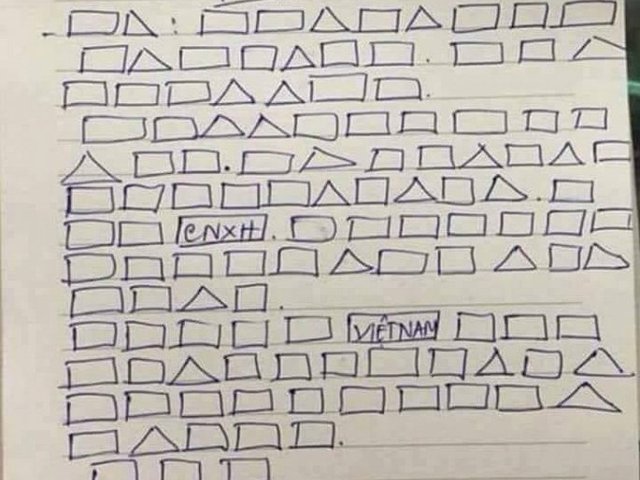 CNXH.
VIỆTNAM